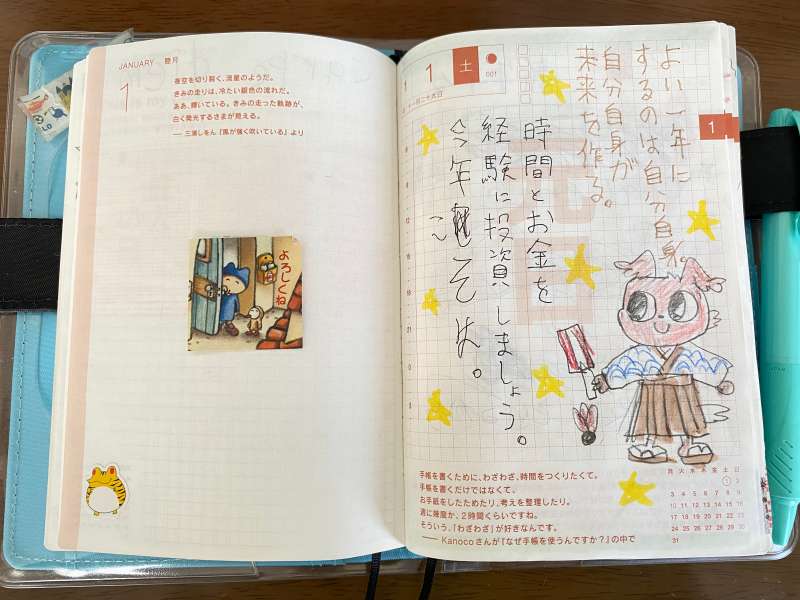 JANUARY 睦月
1
夜空を切り裂く、流星のようだ。
きみの走りは、冷たい銀色の流れだ。
ああ、輝いている。きみの走った軌跡が、
白く発光するさまが見える。
── 三浦しをん『風が強く吹いている』より
よろしくね
1
1
土
001
1
元日
よい一年に
するのは自分自身。
自分自身が
未来を作る。
時間とお金を
経験に投資しましょう。
今年
こそは。
手帳を書くために、わざわざ、時間をつくりたくて。
手帳を書くだけではなくて、
お手紙をしたためたり、考えを整理したり。
週に幾度か、2時間くらいですね。
そういう、「わざわざ」が好きなんです。
── Kanocoさんが『なぜ手帳を使うんですか?』の中で
月 火 水 木 金 土 日
1 2
3 4 5 6 7 8 9
10 11 12 13 14 15 16
17 18 19 20 21 22 23
24 25 26 27 28 29 30
31